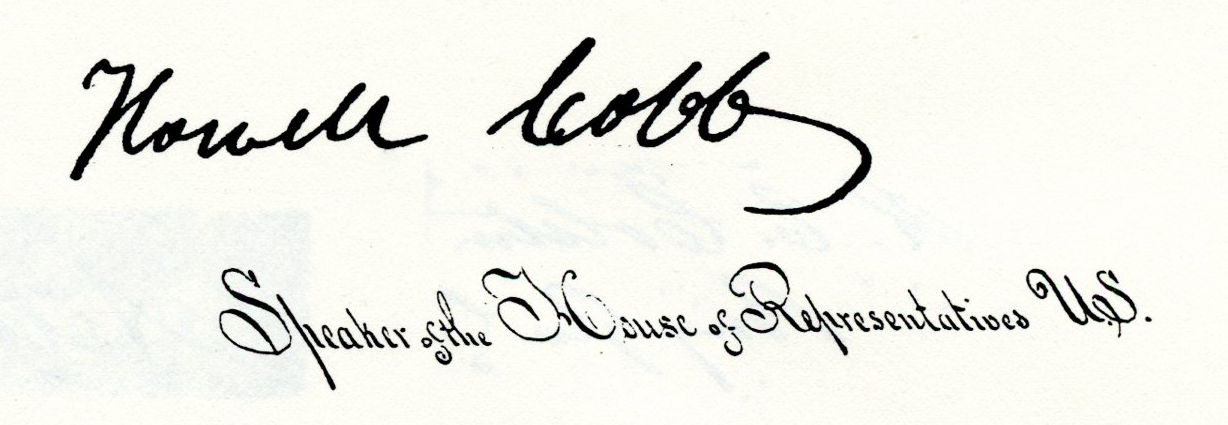 Howell Cobb
Speaker of the House of Representatives U.S.